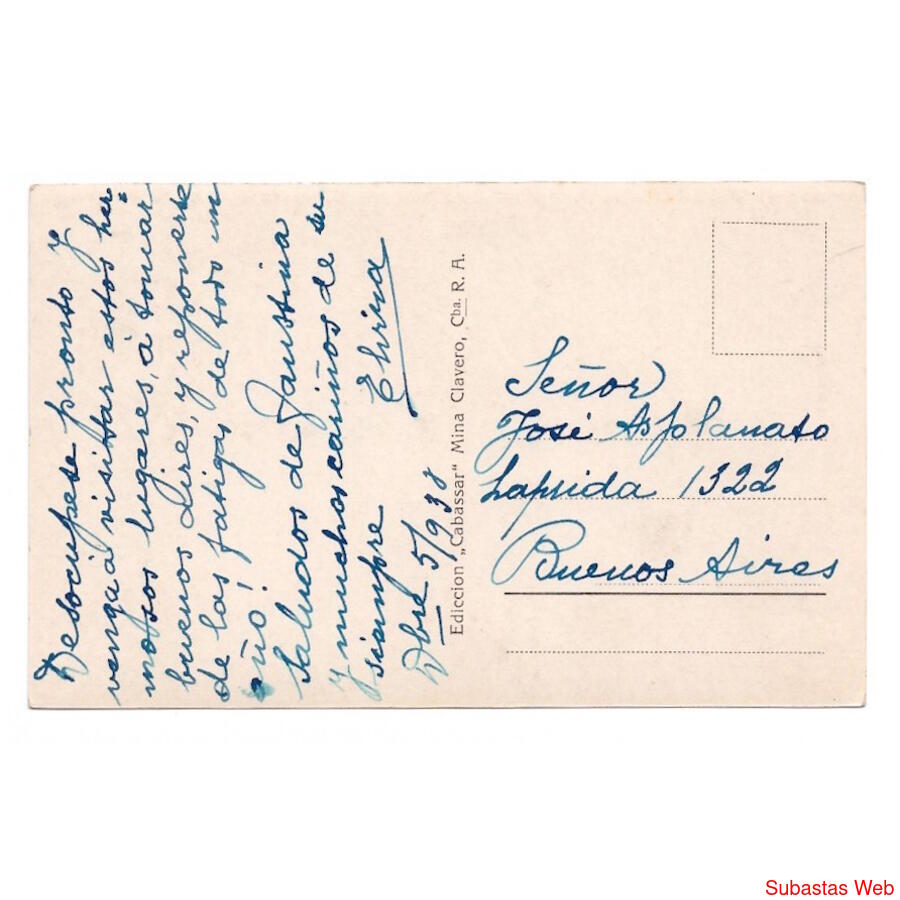 Desocúpese pronto y
venga á visitar estos her-
mosos lugares, á tomar
buenos aires, y reponerse
de las fatigas de todo un
año!
Saludos de Faustina
y muchos cariños de su
siempre
Elvira
Dbre 5/938
Ediccion „Cabassar“ Mina Clavero, Cba. R. A.
Señor
José Asplanato
Laprida 1322
Buenos Aires
Subastas Web